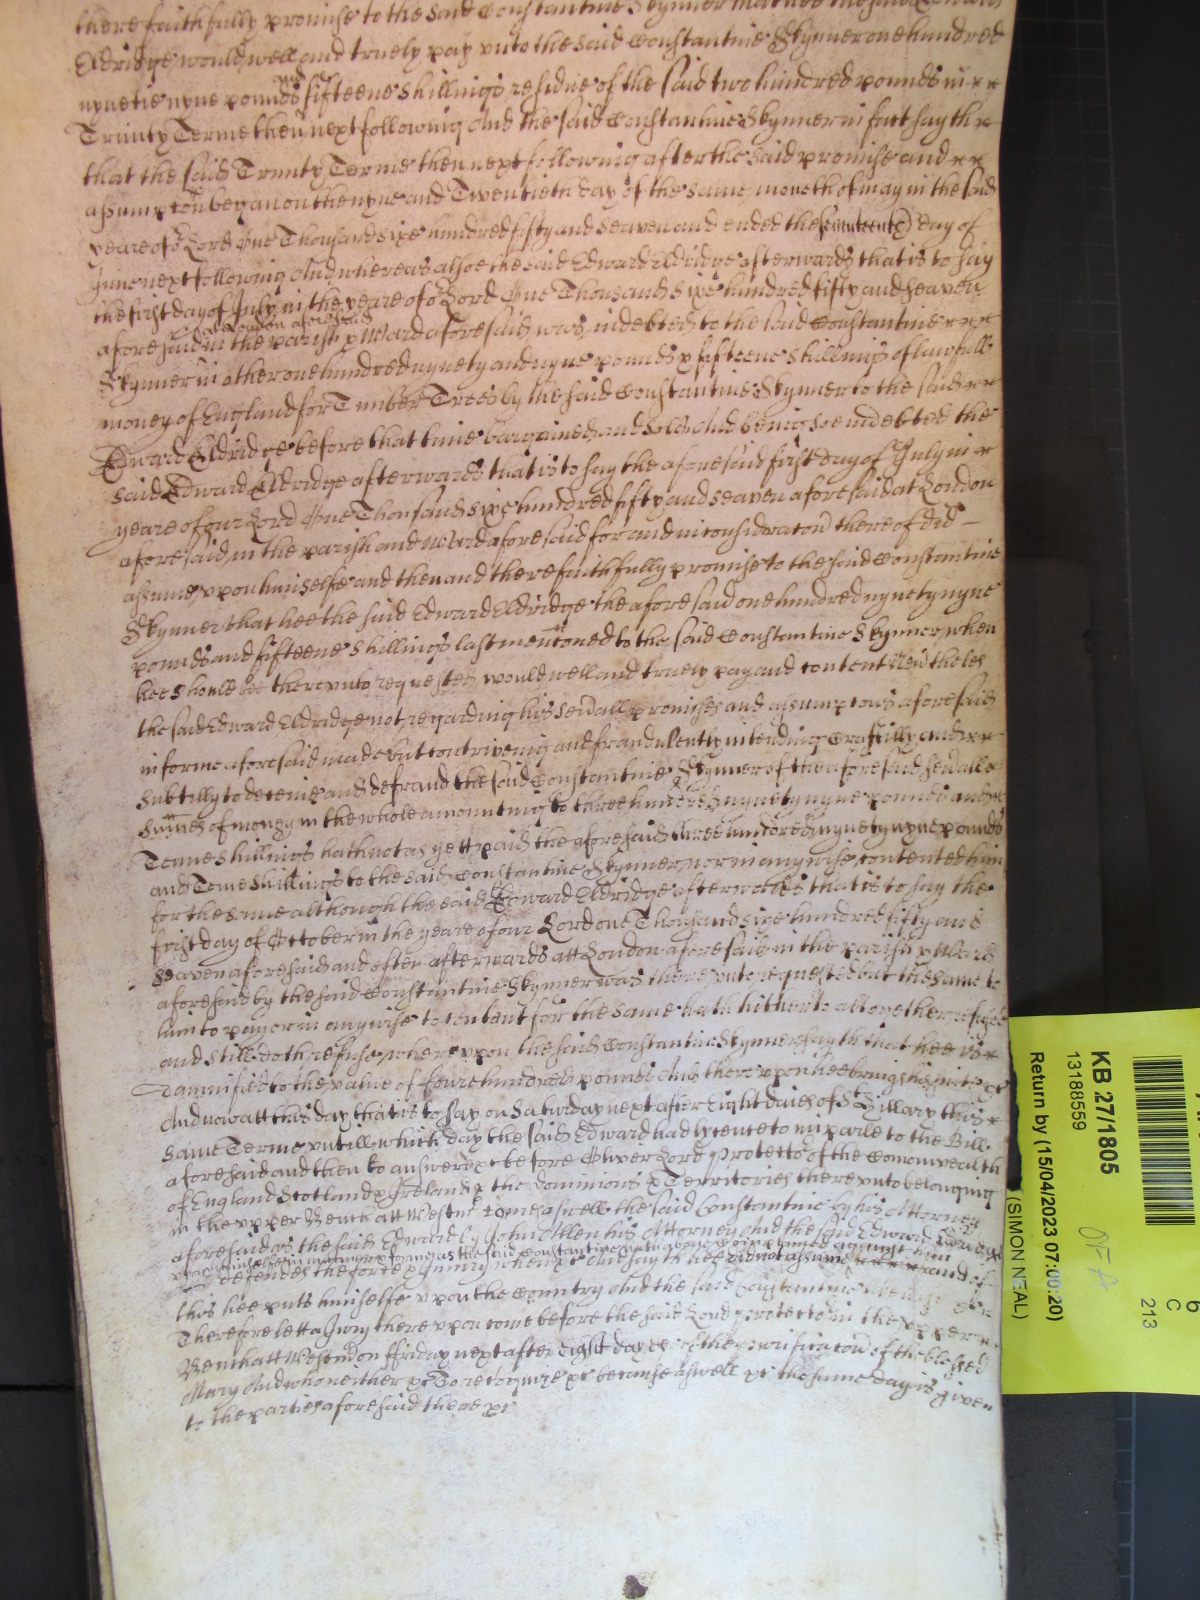 there faithfully promise to the said Constantine Skynner that hee the said Edward
Eldridge would well and truely pay unto the said Constantine Skynner one hundred
nynetie nyne pounds and fifteene shillings residue of the said two hundred pounds in
Trinity Terme then next following And the said Constantine Skynner in fact sayth
that the said Trinity Terme then next following after the said promise and
assumpcon began on the nyne and Twentieth day of the same moneth of may in the said
yeare of or Lord One Thousand sixe hundred fifty and seaven and ended the (seventeenth) day of
June next following And whereas alsoe the said Edward Eldridge afterwards that is to say
the first day of July in the yeare of or Lord One Thousand sixe hundred fifty and seaven
aforesaid at London aforesaid in the parish & Ward aforesaid was indebted to the said Constantine
Skynner in other one hundred nynety and nyne pounds & fifteene shillings of lawfull
money of England for Timber Trees by the said Constantine Skynner to the said
Edward Eldridge before that time bargained and sold And being soe indebted the
said Edward Eldridge afterwards that is to say the aforesaid first day of July in
yeare of our Lord One Thousand sixe hundred fifty and seaven aforesaid at London
aforesaid in the parish and Ward aforesaid for and in consideracon thereof did
assume upon himselfe and then and there faithfully promise to the said Constantine
Skynner that hee the said Edward Eldridge the aforesaid one hundred nynety nyne
pounds and fifteene shillings last menconed to the said Constantine Skynner when
hee should bee thereunto requested would well and truely pay and content Nevtheles
the said Edward Eldridge not regarding his sevall promises and assumpcons aforesaid
in forme aforesaid made but contriveing and fraudulently intending craftily and
subtilly to deceive and defraud the said Constantine Skynner of the aforesaid sevall
summes of money in the whole amounting to three hundred nynety nyne pounds and
Tenne shillings hath not as yett paid the aforesaid three hundred nynety nyne pounds
and Tenne shillings to the said Constantine Skynner nor in any wise contented him
for the same although the said Edward Eldridge afterwards that is to say the
first day of October in the yeare of our Lord one Thousand sixe hundred fifty and
Seaven aforesaid and often afterwards att London aforesaid in the parish & Ward
aforesaid by the said Constantine Skynner was thereunto requested but the same to
him to pay or in any wise to content for the same hath hitherto altogether refused
and still doth refuse whereupon the said Constantine Skynner sayth that hee is
damnified to the value of foure hundred pounds And thereupon hee brings his suite &c
And now att this day that is to say on Saturday next after Eight daies of St Hillary this
same Terme untill which day the said Edward had lycence to imparle to the Bill
aforesaid and then to answere &c before Oliver Lord Protector of the Comonwealth
of England Scotland & Ireland & the dominions & Territories thereunto belonging
in the upper Bench att Westmr come aswell the said Constantine by his Attorney
aforesaid as the said Edward by John Allen his Attorney And the said Edward
defendes the force & iniury when &c And sayth hee did not assume
upon himselfe in manner & forme as the said Constantine hath above complained against him and of
this hee putts himselfe upon the Country And the said Constantine
Therefore lett a Jury thereupon come before the said Lord Protector in the upper
Bench att Westmr on ffriday next after Eight dayes of the purificacon of the blessed
Mary And who neither &c To recognize &c because aswell &c the same day is given
to the parties aforesaid there &c
KB 27/1805
13188559
Return by (15/04/2023 07:00:20)
(SIMON NEAL)
OFA
6
C
213